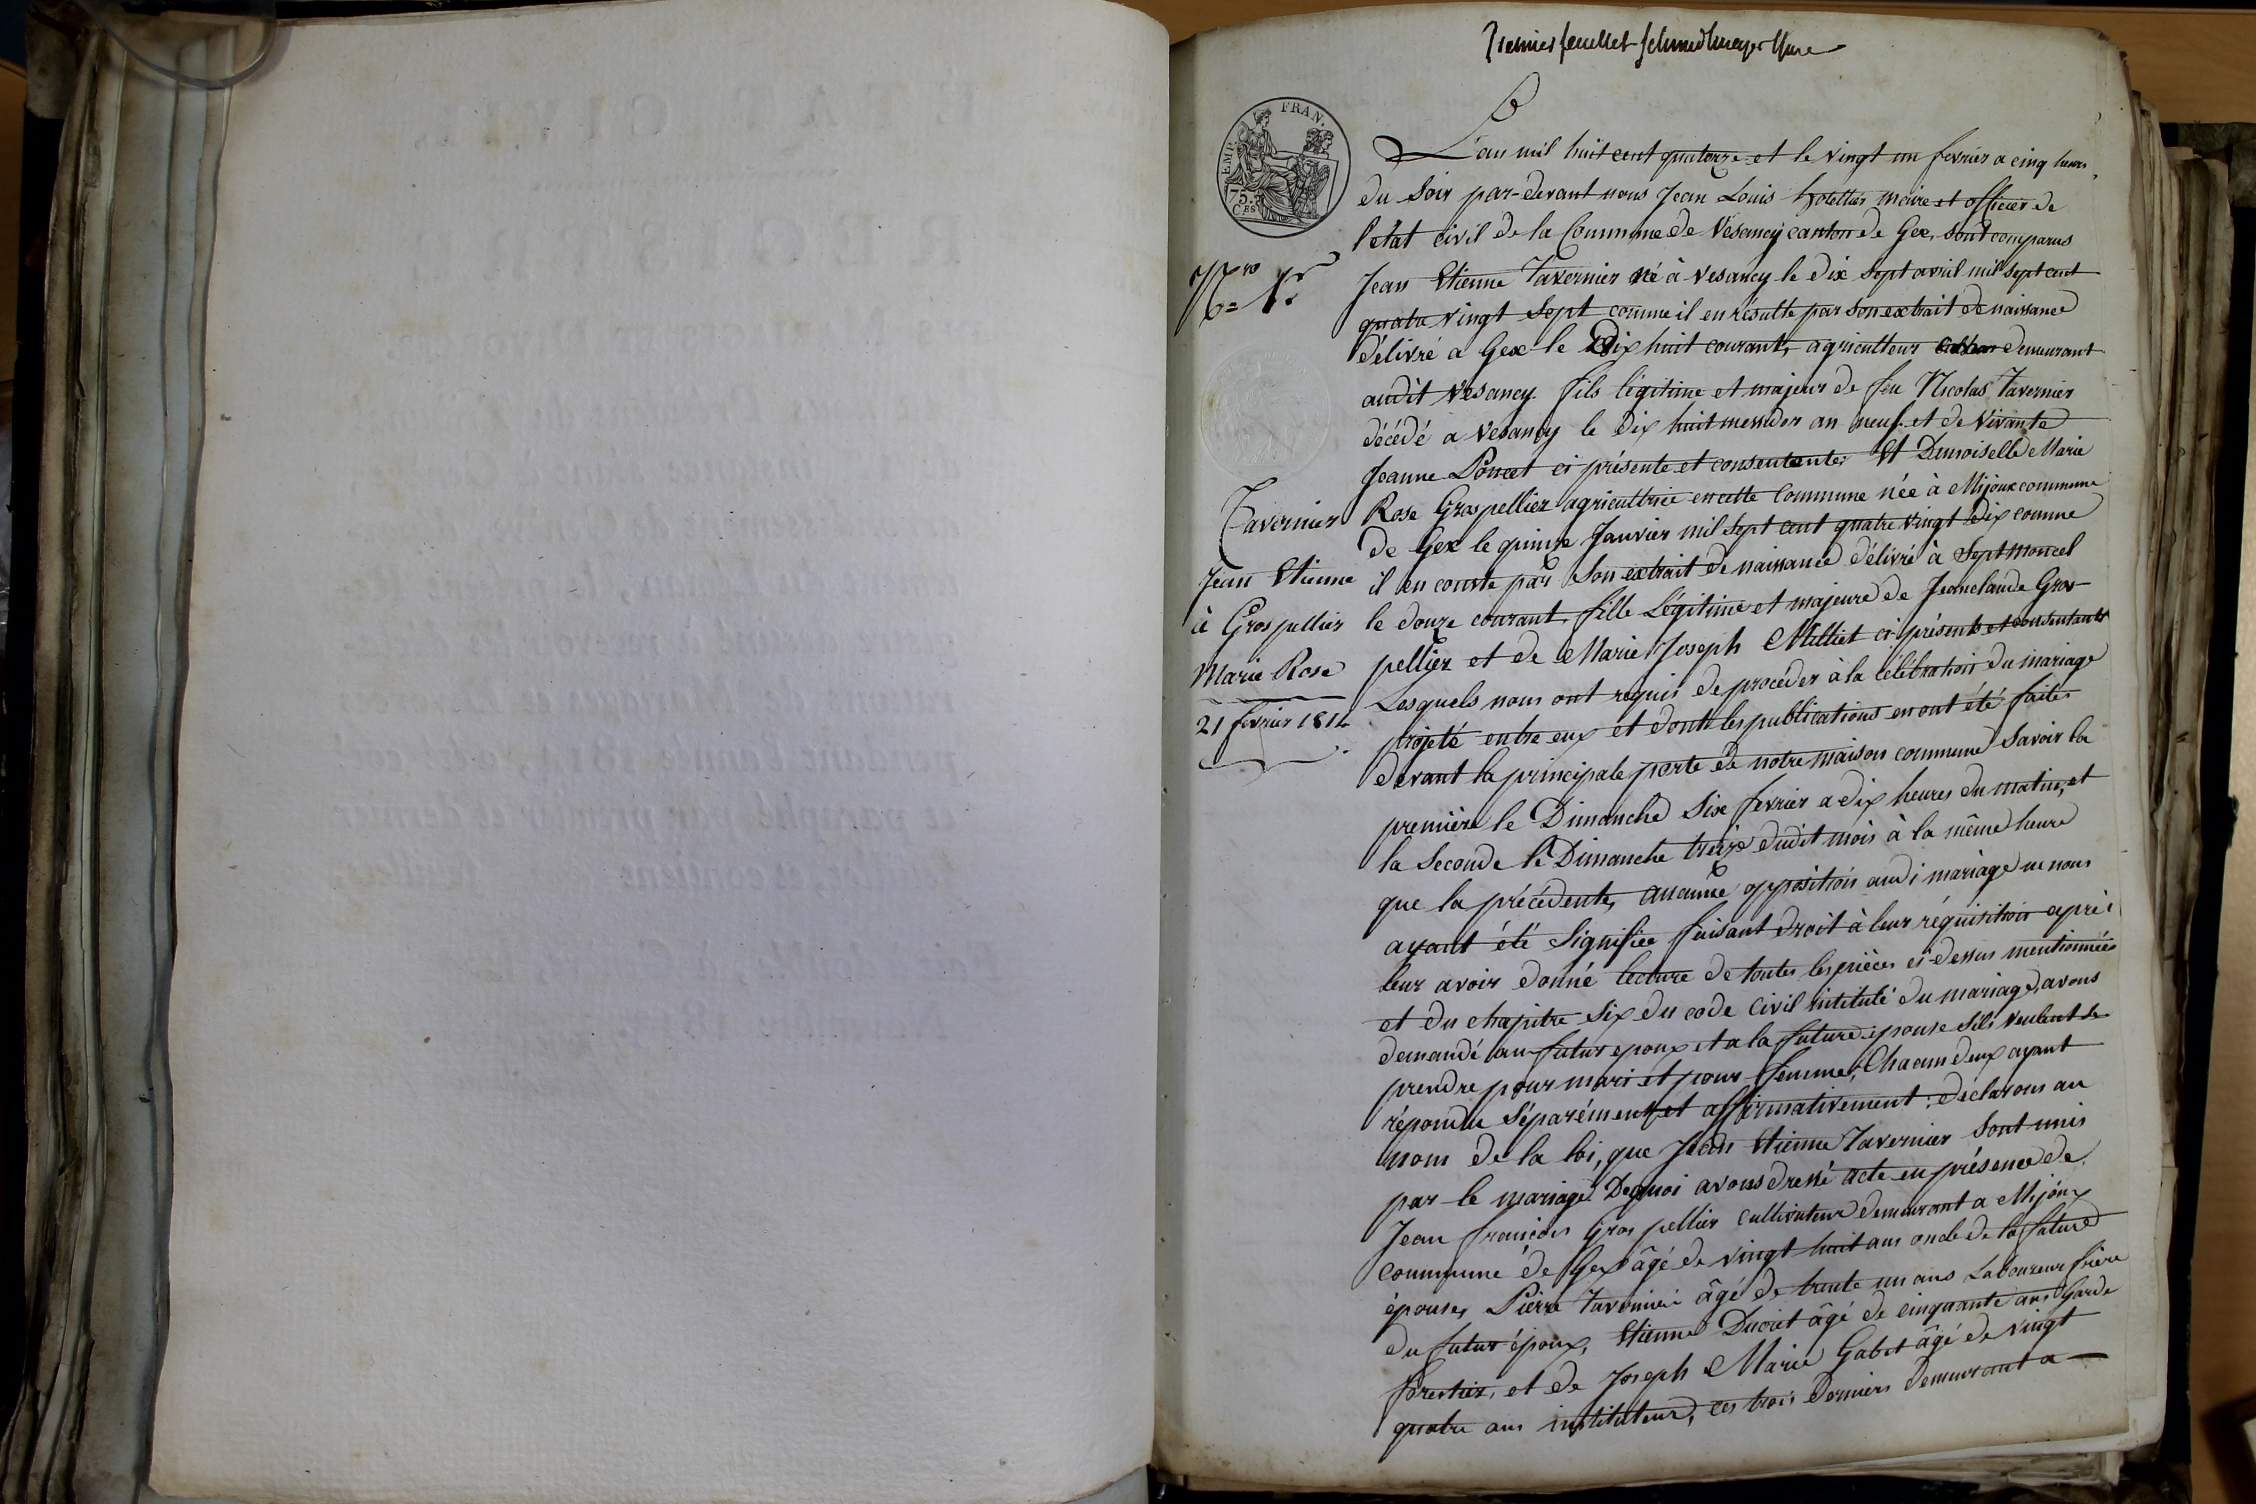 Premier feuillet
EMP. FRAN.
75.
CES
L'an mil huit cent quatorze et le vingt un fevrier a cinq heures
du soir par-devant nous Jean Louis hotellier maire et officier de
l'etat civil de la Commune de Vesancy canton de Gex, sont comparus
Jean Etienne Tavernier né à Vesancy le dix sept avril mil sept cent
quatre vingt sept comme il en résulte par son extrait de naissance
délivré a Gex le Dix huit courant, agriculteur demeurant
audit Vesancy. fils légitime et majeur de feu Nicolas Tavernier
décédé a Vesancy le dix huit messidor an neuf. et de vivante
Jeanne Poncet ci présente et consentente; Et Demoiselle Marie
Rose Grospellier agricultrice en cette Commune née à Mijoux commune
de Gex le quinze Janvier mil sept cent quatre vingt dix comme
il en conste par son extrait de naissance délivré à Septmoncel
le douze courant, fille Légitime et majeure de Jeanclaude Gros-
pellier et de Marie Joseph Milliet ci présents et consentants
Lesquels nous ont requis de procéder à la célébration du mariage
projeté entre eux et dont les publications en ont été faites
devant la principale porte de notre maison commune Savoir la
première le Dimanche Six fevrier a dix heures du matin, et
la Seconde le Dimanche treize dudit mois à la même heure
que la précédente, aucune opposition audi mariage ne nous
ayant été Signifiée faisant droit à leur réquisition après
leur avoir donné lecture de toutes les pièces ci-dessus mentionnées
et du chapitre six du code civil intitulé du mariage, avons
demandé au futur epoux et a la future épouse s'ils veulent se
prendre pour mari et pour femme, Chacun deux ayant
répondu séparément et affirmativement: déclarons au
nom de la loi, que Jean Etienne Tavernier sont unis
par le mariage. Dequoi avons dressé acte en présence de
Jean françois Gros pellier cultivateur demeurant a Mijoux
commune de Gex âgé de vingt huit ans oncle de la future
épouse, Pierre Tavernier âgé de trente un ans Laboureur frère
du futur époux, Etienne Ducret âgé de cinquante ans Garde
forestier, et de Joseph Marie Gabet âgé de vingt
quatre ans instituteur, ces trois derniers demeurant a
Nro 1er
Tavernier
Jean Etienne
à Gros pellier
Marie Rose
21 fevrier 1814